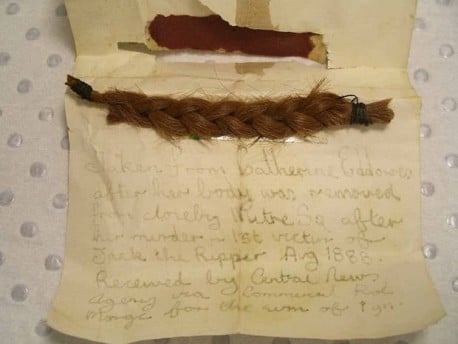 Taken from Catherine Eddowes
after her body was removed
from closeby Mitre Sq after
her murder 1st victim of
Jack the Ripper Aug 1888.
Received by Central News
Agency via Commercial Rd
for the sum of 1 gn.